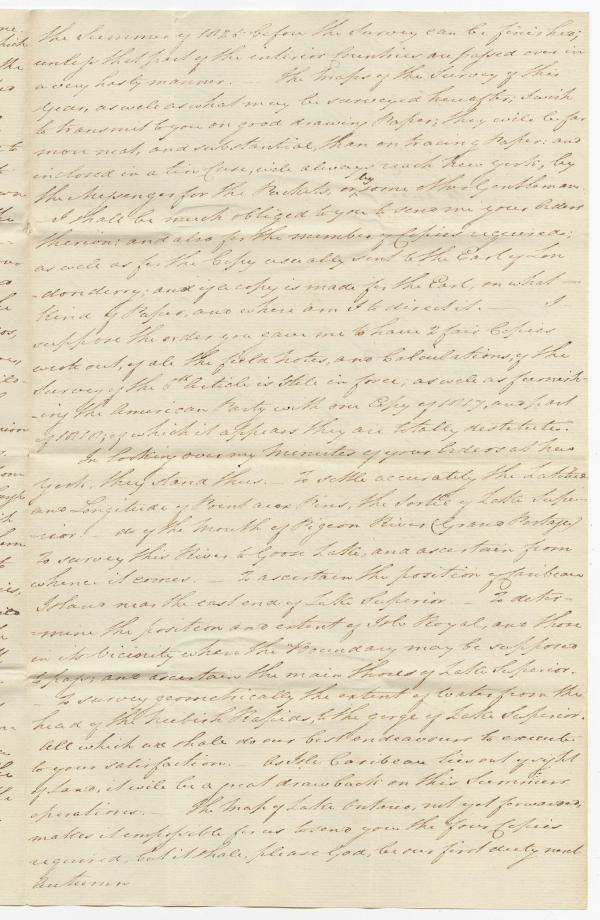 the Summer of 1825 before the Survey can be finished;
unless that part of the interior Countries are passed over in
a very hasty manner. The Maps of the Survey of this
Year, as well as what may be surveyed hereafter; I wish
to transmit to you on good drawing Paper; they will be far
more neat, and substantial, than on tracing Paper: and
inclosed in a tin Case, will always reach New York, by
the Messenger for the Packets, or by some other Gentleman.
- I shall be much obliged to you to send me your Orders
thereon: and also for the number of Copies required;
as well as for the Copy usually sent to the Earl of Lon
-donderry; and if a copy is made for the Earl, on what -
kind of Paper, and where am I to direct it. - I
suppose the order you gave me to have 2 fair Copies
work out, of all the field Notes, and Calculations, of the
Survey of the 6th Article is still in force; as well as furnish-
-ing the American Party with one Copy of 1817, and part
of 1818; of which it appears they are totally destitute.
In looking over my Minutes of your Orders at New
York, they stand thus. - To settle accurately the Latitude
and Longitude of Point aux Pins, the Sortie of Lake Supe-
-rior. - do of the Mouth of Pigeon River (Grand Portage)
To survey this River to Goose Lake, and ascertain from
whence it comes. - To ascertain the position of Caribeau
Island near the east end of Lake Superior - To deter-
-mine the position and extent of Isle Royal, and those
in its Vicinity where the Boundary may be supposed
to pass; and ascertain the main shores of Lake Superior.
- To survey geometrically the extent of Water from the
head of the Neebish Rapids, to the gorge of Lake Superior.
All which we shall do our best endeavours to execute
to your satisfaction. - As Isle Caribeau lies out of sight
of Land, it will be a great drawback on this Summers
operations. - The Map of Lake Ontario, not yet forwarded,
makes it impossible for us to send you the four Copies
required, but it shall, please God, be our first duty next
Autumn